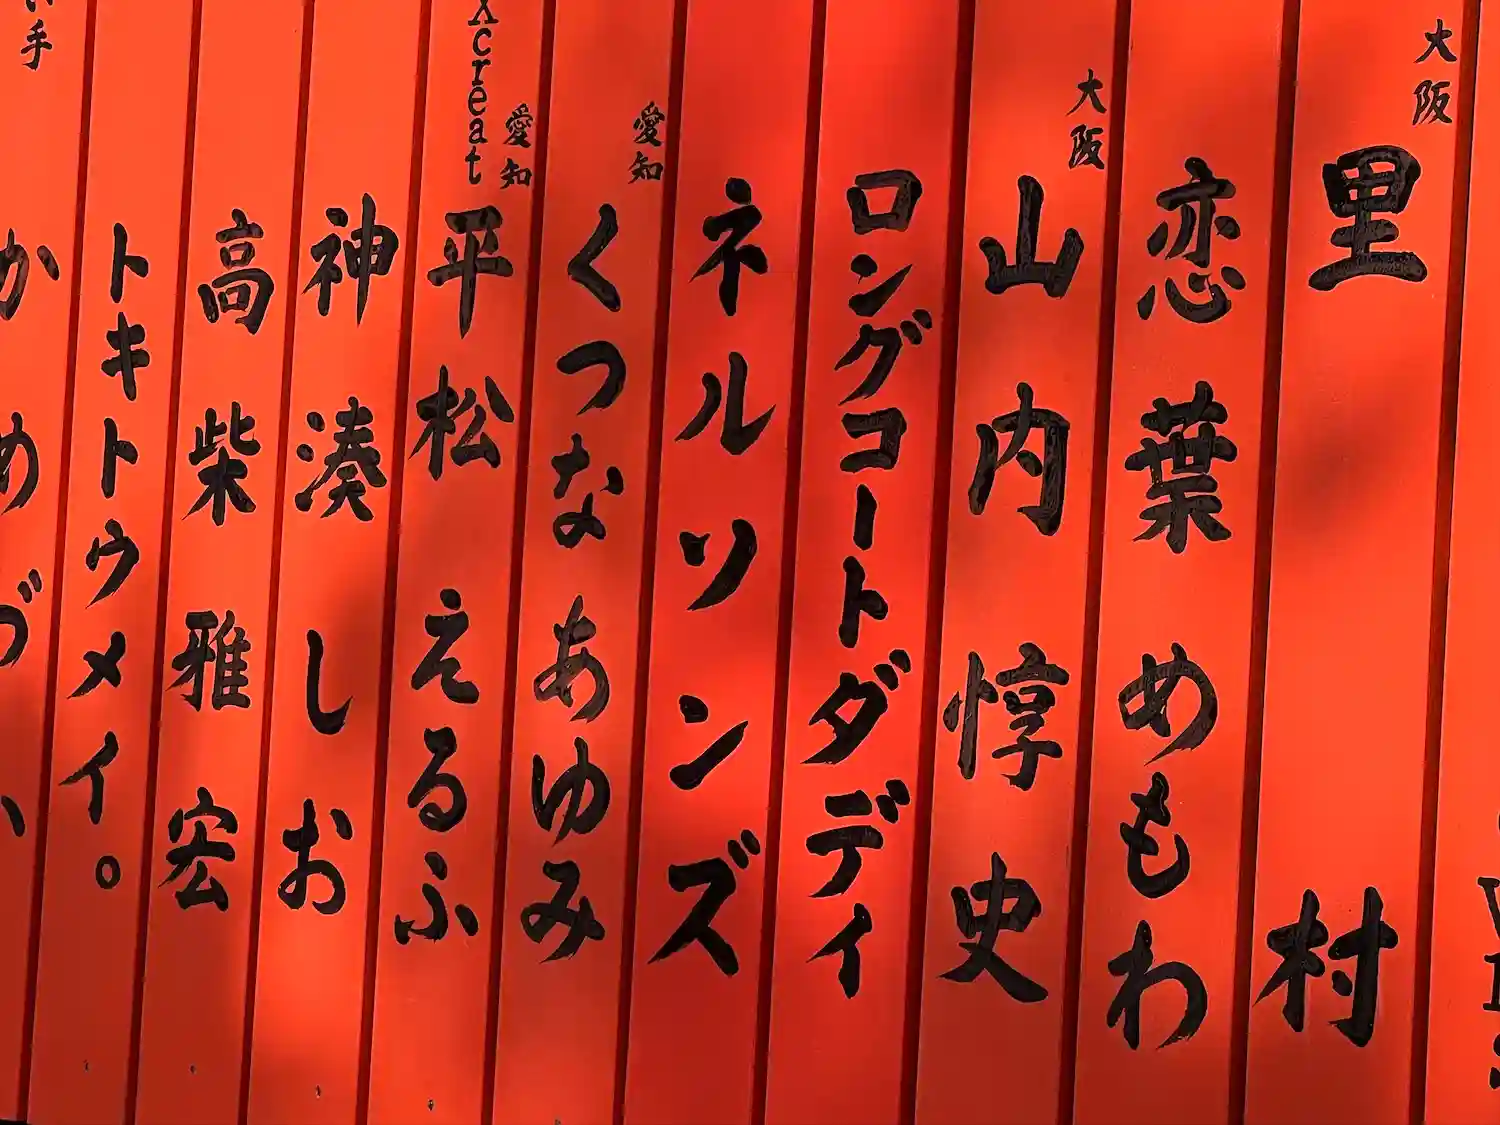 大阪
里村
恋葉めもわ
大阪
山内惇史
ロングコートダディ
ネルソンズ
愛知
くつな あゆみ
愛知
Xcreat
平松 えるふ
神湊 しお
高柴雅宏
トキトウメイ。
手
かめづ